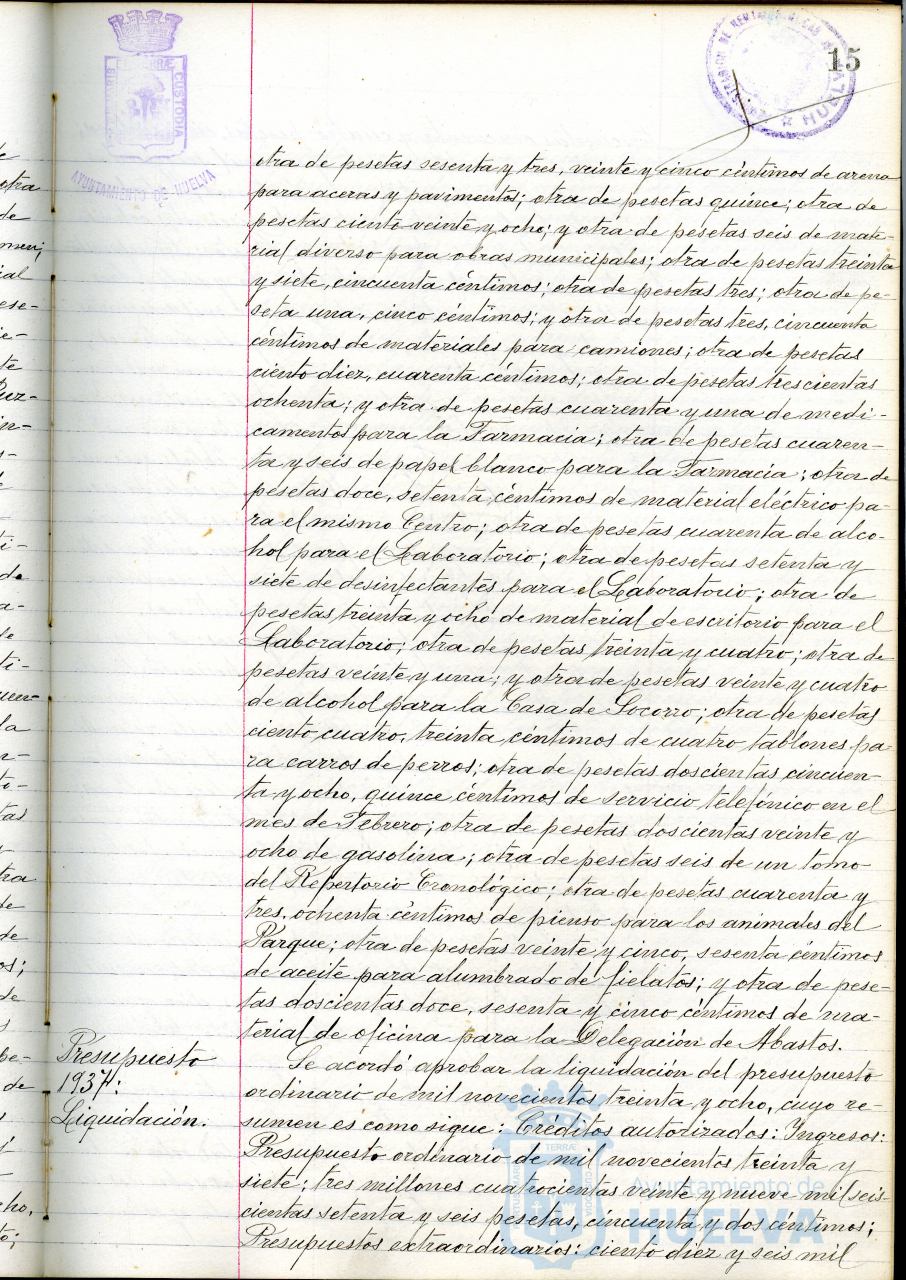 15
AYUNTAMIENTO DE HUELVA
CUSTODIA
HUELVA
otra de pesetas sesenta y tres, veinte y cinco céntimos de arena
para aceras y pavimentos; otra de pesetas quince; otra de
pesetas ciento veinte y ocho; y otra de pesetas seis de mate-
rial diverso para obras municipales; otra de pesetas treinta
y siete, cincuenta céntimos; otra de pesetas tres; otra de pe-
seta una, cinco céntimos; y otra de pesetas tres, cincuenta
céntimos de materiales para camiones; otra de pesetas
ciento diez, cuarenta céntimos; otra de pesetas trescientas
ochenta; y otra de pesetas cuarenta y una de medi-
camentos para la Farmacia; otra de pesetas cuaren-
ta y seis de papel blanco para la Farmacia; otra de
pesetas doce, setenta céntimos de material eléctrico pa-
ra el mismo Centro; otra de pesetas cuarenta de alco-
hol para el Laboratorio; otra de pesetas setenta y
siete de desinfectantes para el Laboratorio; otra de
pesetas treinta y ocho de material de escritorio para el
Laboratorio; otra de pesetas treinta y cuatro; otra de
pesetas veinte y una; y otra de pesetas veinte y cuatro
de alcohol para la Casa de Socorro; otra de pesetas
ciento cuatro, treinta céntimos de cuatro tablones pa-
ra carros de perros; otra de pesetas doscientas cincuen-
ta y ocho, quince céntimos de servicio telefónico en el
mes de Febrero; otra de pesetas doscientas veinte y
ocho de gasolina; otra de pesetas seis de un tomo
del Repertorio Cronológico; otra de pesetas cuarenta y
tres, ochenta céntimos de pienso para los animales del
Parque; otra de pesetas veinte y cinco, sesenta céntimos
de aceite para alumbrado de fielatos; y otra de pese-
tas doscientas doce, sesenta y cinco céntimos de ma-
terial de oficina para la Delegación de Abastos.
Presupuesto
1937:
Liquidación.
Se acordó aprobar la liquidación del presupuesto
ordinario de mil novecientos treinta y ocho, cuyo re-
sumen es como sigue: Créditos autorizados: Ingresos:
Presupuesto ordinario de mil novecientos treinta y
siete: tres millones cuatrocientas veinte y nueve mil seis-
cientas setenta y seis pesetas, cincuenta y dos céntimos;
Presupuestos extraordinarios: ciento diez y seis mil
Ayuntamiento de
HUELVA